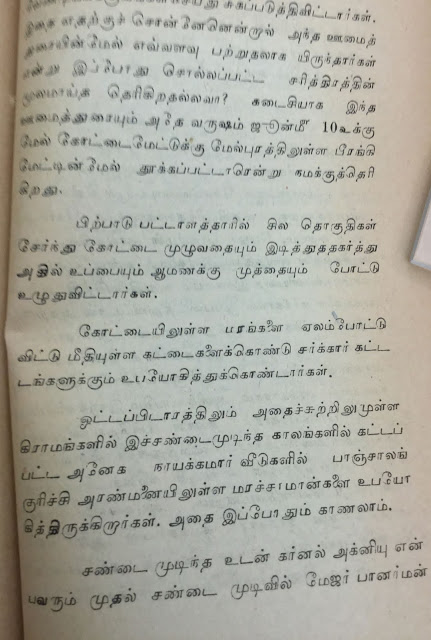 சுகப்படுத்திவிட்டார்கள்.
இதை எதற்குச் சொன்னேனென்றால் அந்த ஊமைத்
துரையின்மேல் எவ்வளவு பற்றுதலாக யிருந்தார்கள்
என்று இப்போது சொல்லப்பட்ட சரித்திரத்தின்
மூலமாய்த தெரிகிறதல்லவா? கடைசியாக இந்த
ஊமைத்துரையும் அதே வருஷம் ஜூன்மீ 10உக்கு
மேல் கோட்டைமேட்டுக்கு மேல்புரத்திலுள்ள பீரங்கி
மேட்டின்மேல் தூக்கப்பட்டாரென்று நமக்குத்தெரி
கிறது.
பிற்பாடு பட்டாளத்தாரில் சில தொகுதிகள்
சேர்ந்து கோட்டை முழுவதையும் இடித்துததகர்த்து
அதில் உப்பையும் ஆமணக்கு முத்தையும் போட்டு
உழுதுவிட்டார்கள்.
கோட்டையிலுள்ள மரங்களை ஏலம்போட்டு
விட்டு மீதியுள்ள கட்டைகளைக்கொண்டு சர்க்கார் கட்ட
டங்களுக்கும் உபயோகித்துக்கொண்டார்கள்.
ஒட்டப்பிடாரத்திலும் அதைச்சுற்றிலுமுள்ள
கிராமங்களில் இச்சண்டைமுடிந்த காலங்களில் கட்டப்
பட்ட அனேக நாயக்கமார் வீடுகளில் பாஞ்சாலங்
குரிச்சி அரண்மனையிலுள்ள மரச்சாமான்களை உபயோ
கித்திருக்கிறார்கள். அதை இப்போதும் காணலாம்.
சண்டை முடிந்த உடன் கர்னல் அக்னியு என்
பவரும் முதல் சண்டை முடிவில் மேஜர் பானர்மன்